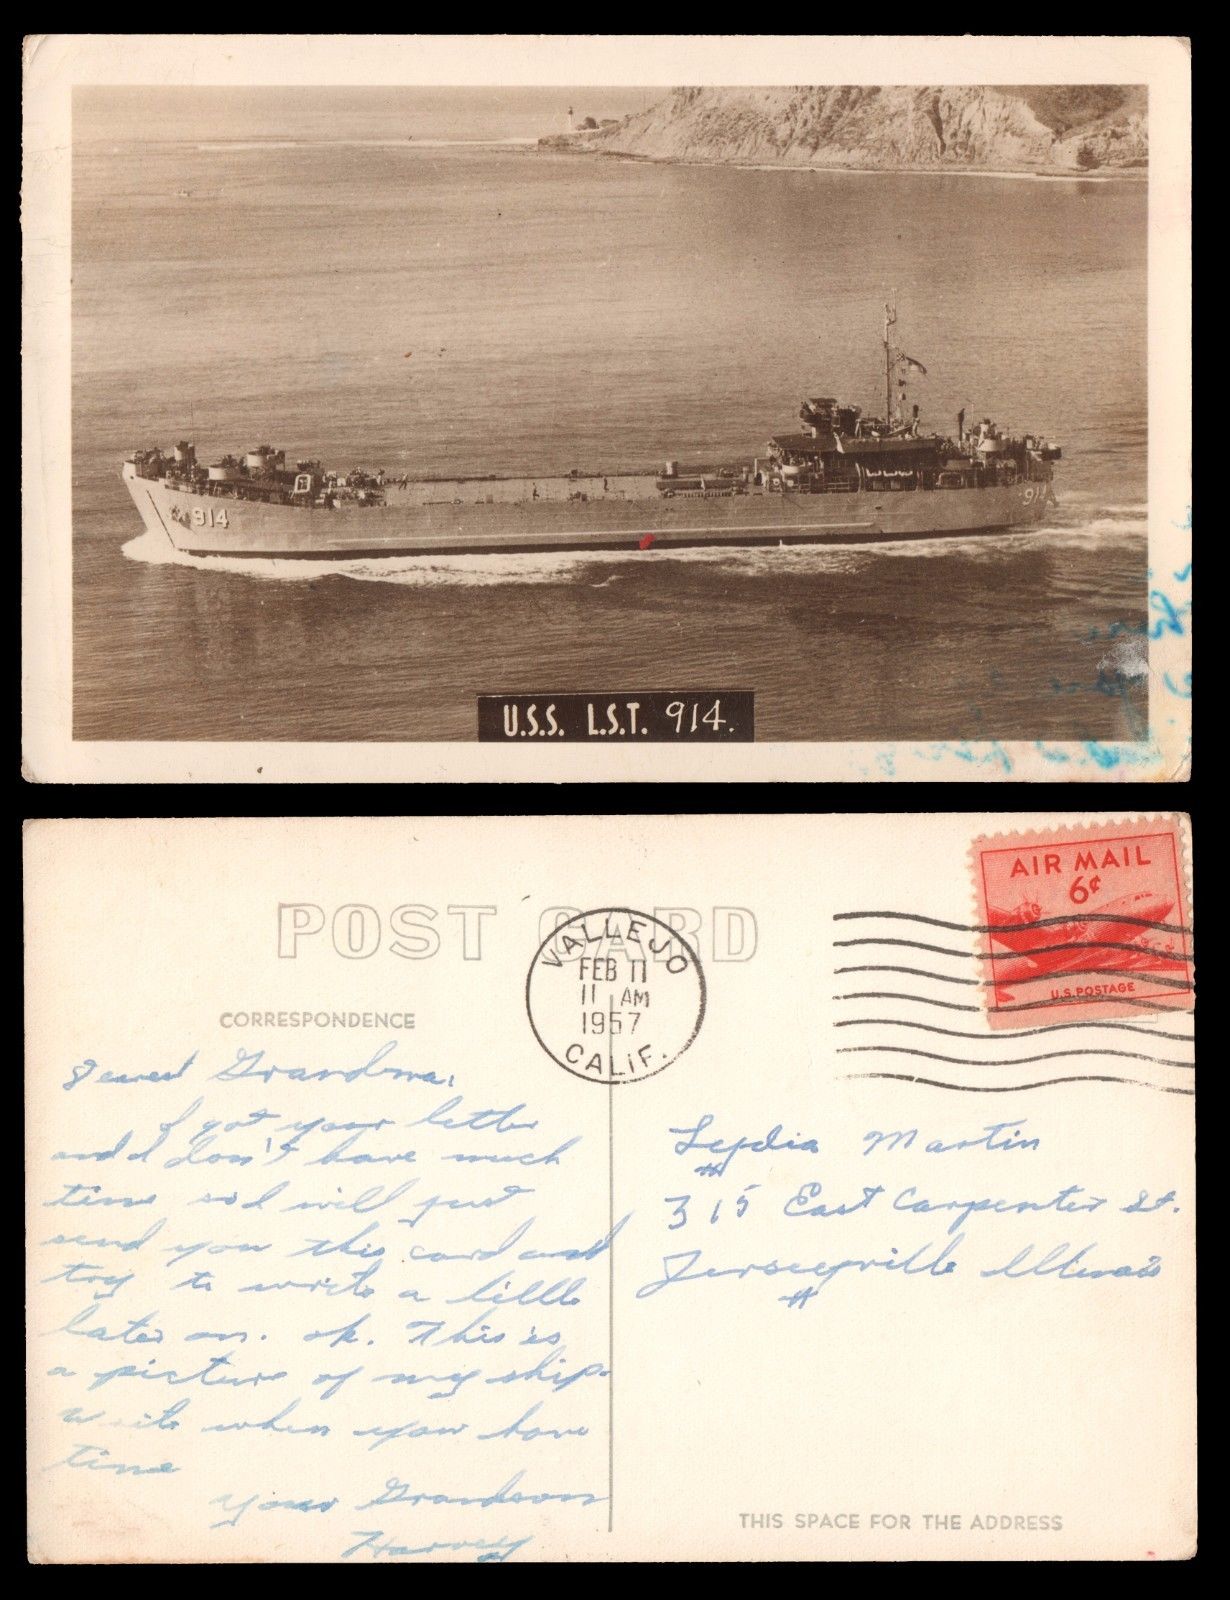 914
914
U.S.S. L.S.T. 914.
POST CARD
AIR MAIL
6¢
U.S. POSTAGE
VALLEJO
FEB 11
11 AM
1957
CALIF.
CORRESPONDENCE
Dearest Grandma,
I got your letter
and I don't have much
time so I will just
send you this card and
try to write a little
later on. ok. This is
a picture of my ship.
Write when you have
time
Your Grandson
Harvey
Lydia Martin
315 East Carpenter St.
Jerseyville Illinois
THIS SPACE FOR THE ADDRESS